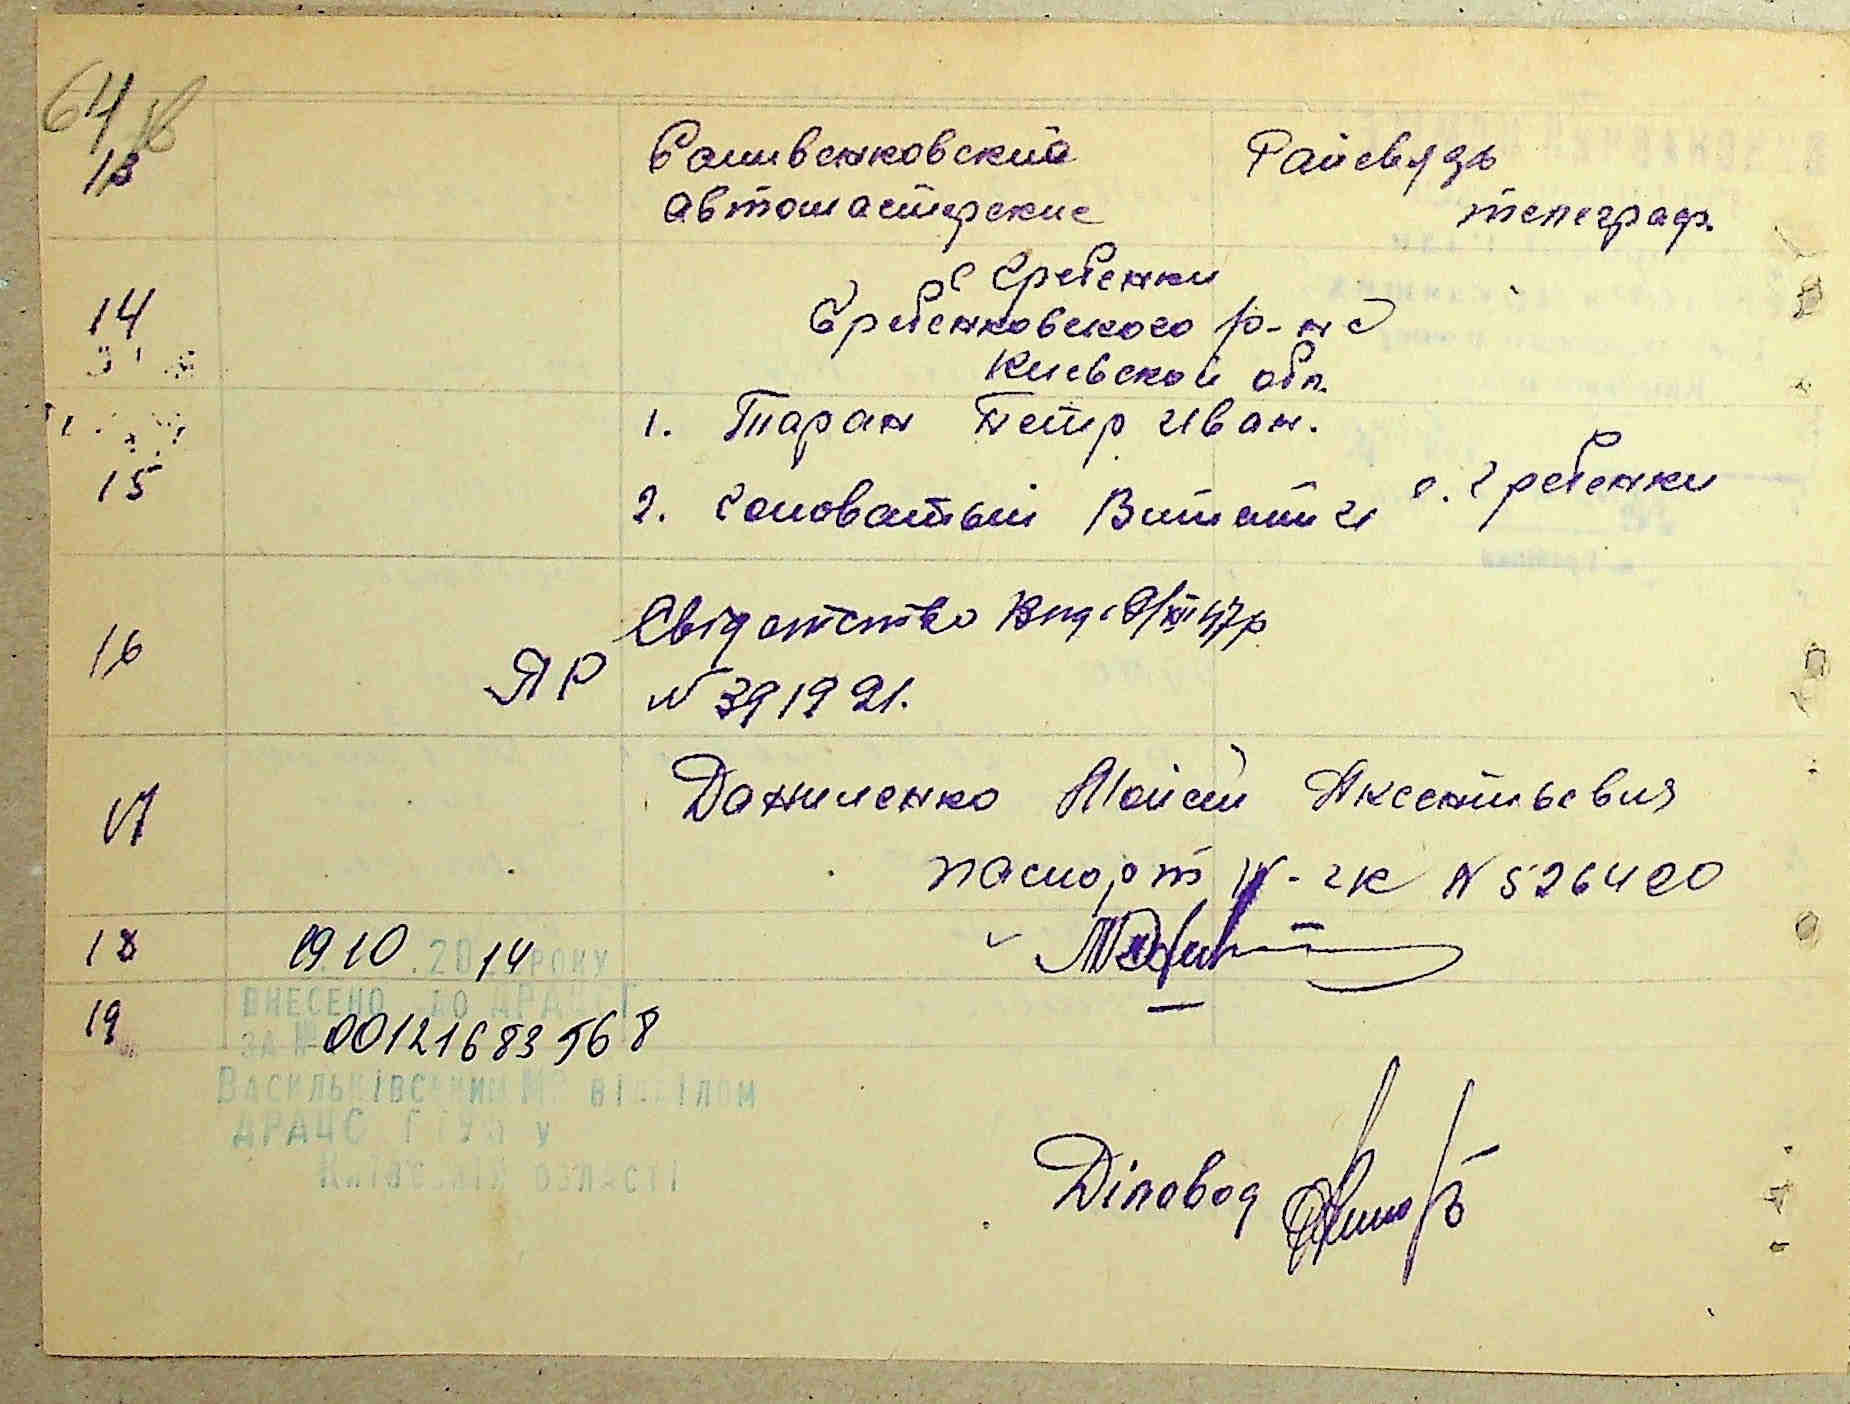 64
13 Саливенковский Райсвязь
автомастерские телеграф.
с Гребенки
14 Гребенковского р-на
Киевской обл.
1. Таран Петр Иван.
15 2. Соловатый с. Гребенки
Свідотство Вид. 9/XII 47р
16 ЯР N 391921.
17 Даниленко Мойсей Аксентьевич
паспорт IV-гк N 526420
18 19 10 .2014 РОКУ
ВНЕСЕНО ДО ДРАЦСГ
19 ЗА № 00121683568
ВАСИЛЬКІВСЬКИМ МР ВІДДІЛОМ
ДРАЦС ГТУЮ У
КИЇВСЬКІЙ ОБЛАСТІ
Діловод